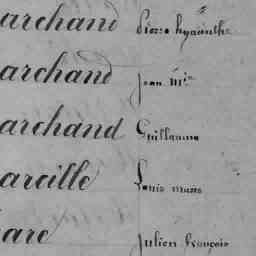 archand Pierre hyacinthe
archand jean m.ie
archand Guillaume
areille Louis marie
are julien françois